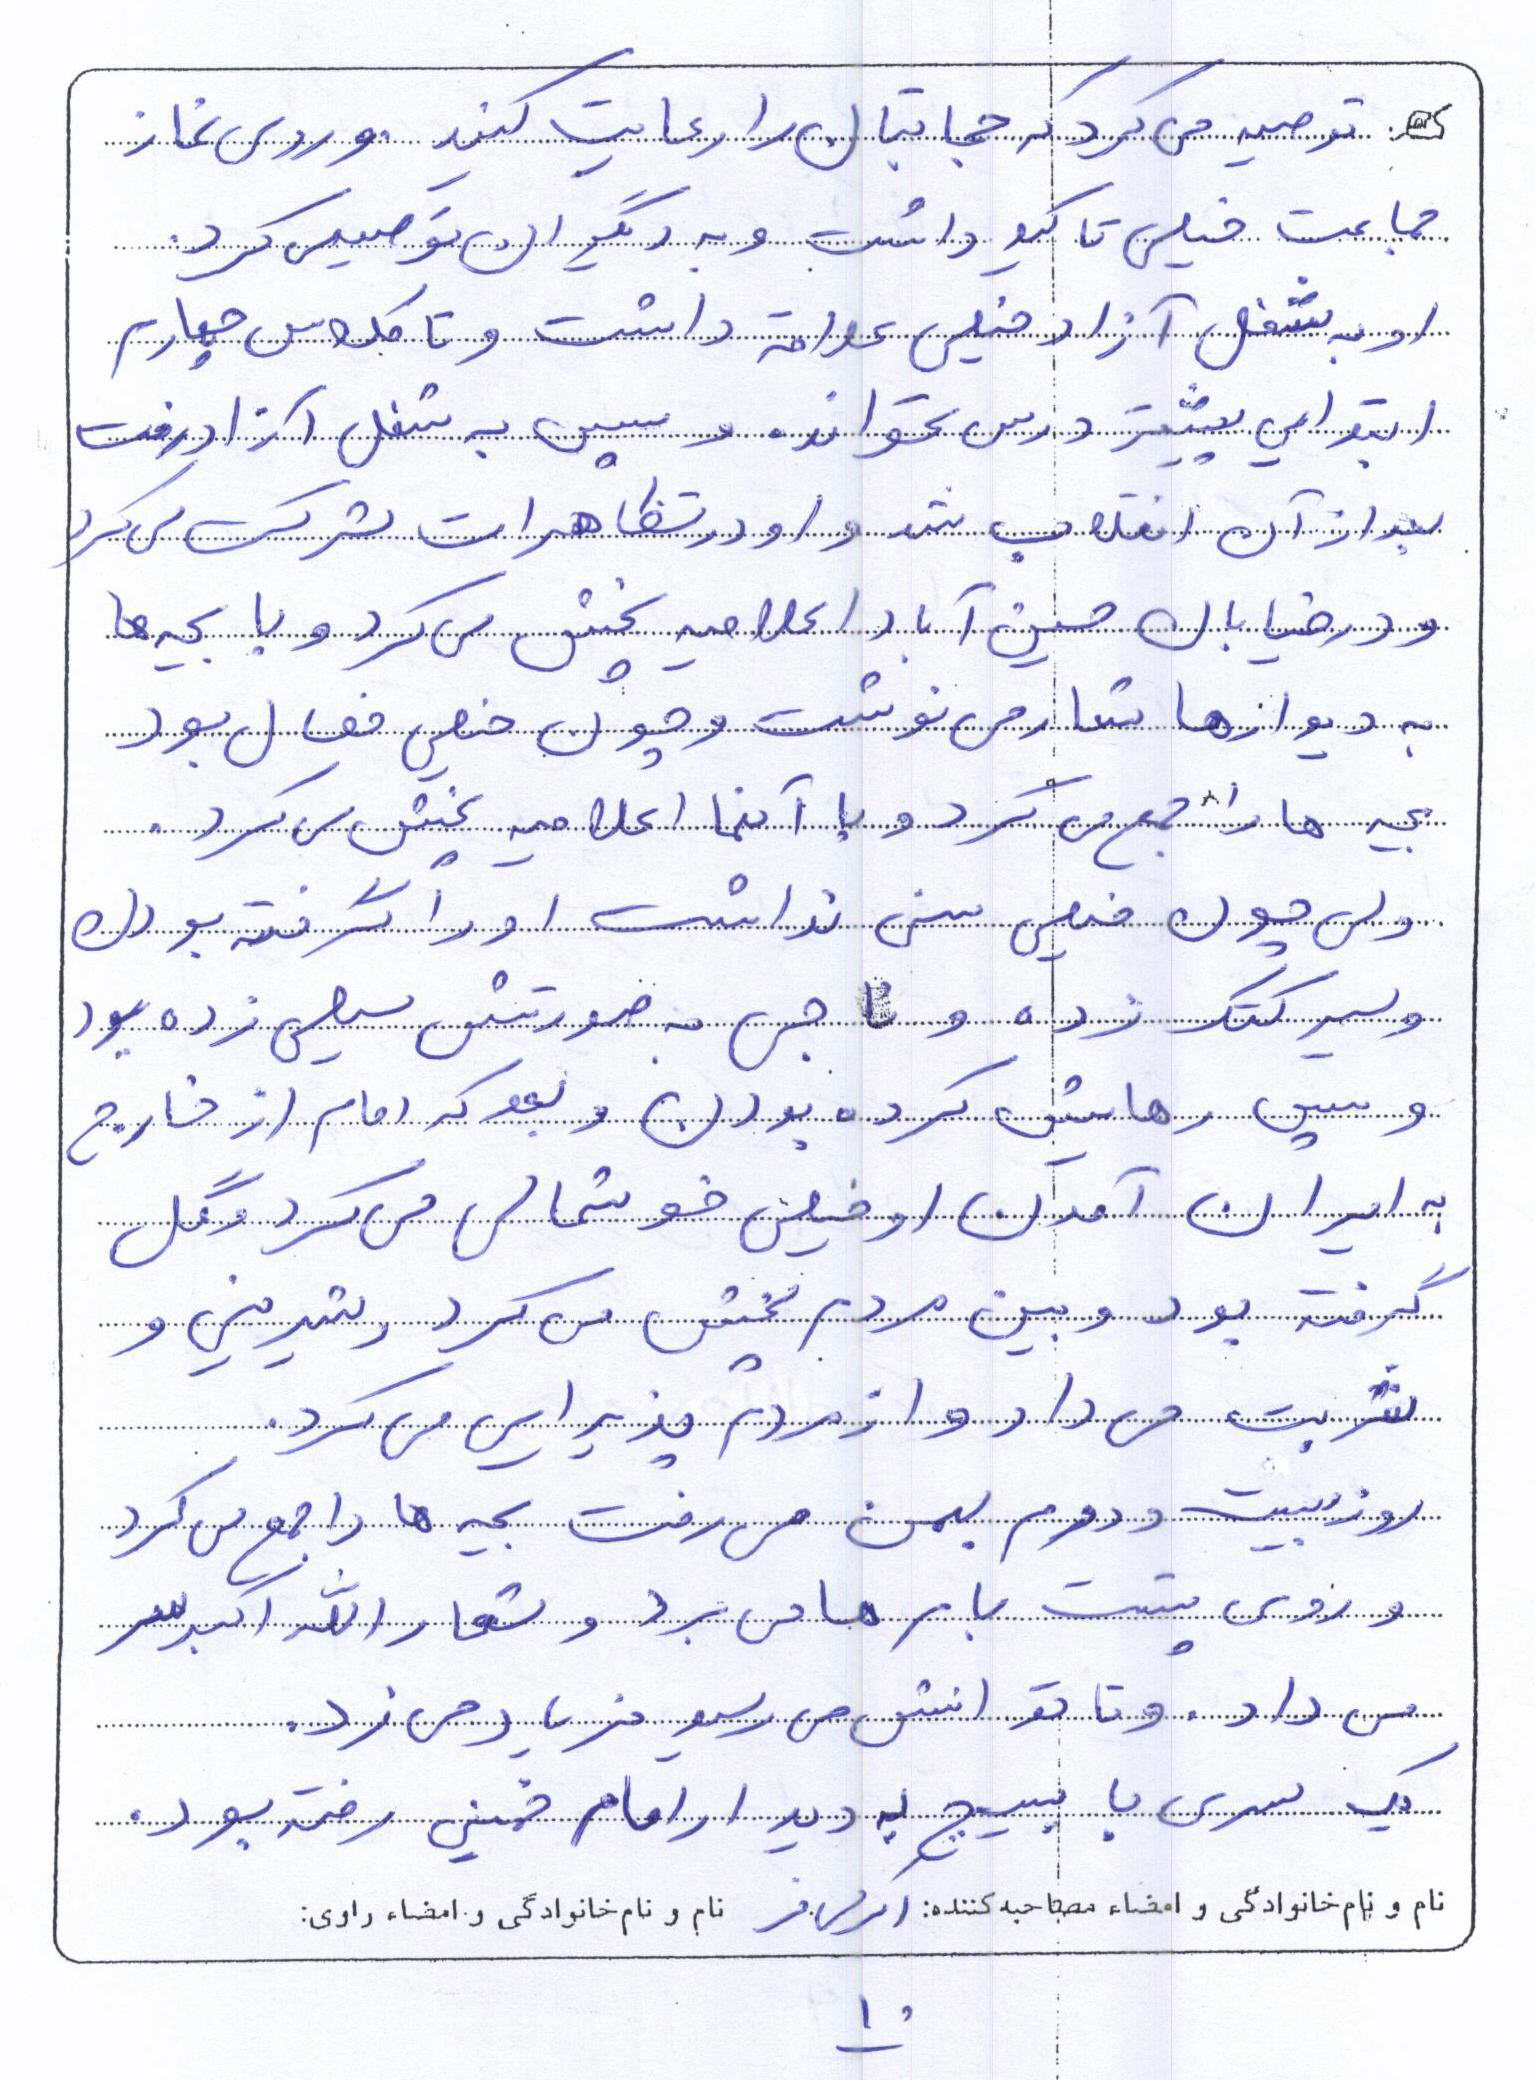 توصیه می کرد که حجابتان را رعایت کنید و روی نماز
جماعت خیلی تاکید داشت و به دیگران توصیه می کرد.
او به شغل آزاد خیلی علاقه داشت و تا کلاس چهارم
ابتدایی بیشتر درس نخوانده و سپس به شغل آزاد رفت
بعد از آن انقلاب شد و او در تظاهرات شرکت می کرد
و در خیابان حسین آباد اعلامیه پخش می کرد و با بچه ها
به دیوارها شعار می نوشت و چون خیلی فعال بود
بچه ها را جمع می کرد و با آنها اعلامیه پخش می کرد.
ولی چون خیلی سنی نداشت او را گرفته بودن
و سیر کتک زده و به صورتش سیلی زده بود
و سپس رهایش کرده بودن و بعد که امام از خارج
به ایران آمدن او خیلی خوشحالی می کرد و گل
گرفته بود و بین مردم پخش می کرد و شیرینی و
شربت می داد و از مردم پذیرایی می کرد.
روز بیست و دوم بهمن می رفت بچه ها را جمع می کرد
و روی پشت بام ها می برد و شعار الله اکبر سر
می داد. و تا توانش می رسید فریاد می زد.
یک سری با بسیج به دیدار امام خمینی رفته بود.
نام و نام خانوادگی و امضاء مصاحبه کننده: نام و نام خانوادگی و امضاء راوی:
۱۰